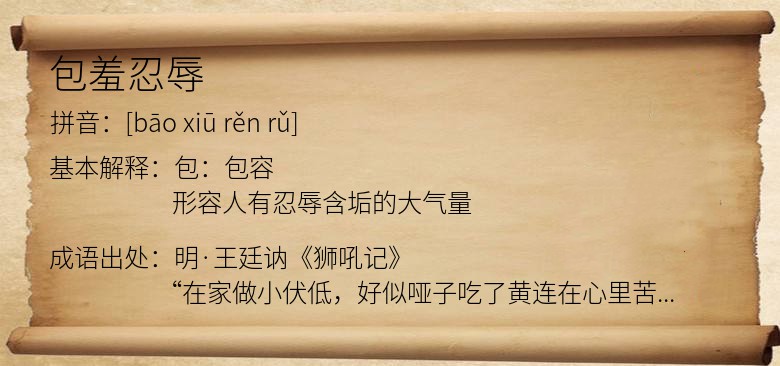 包羞忍辱
拼音：[bāo xiū rěn rǔ]
基本解释：包：包容
形容人有忍辱含垢的大气量
成语出处：明·王廷讷《狮吼记》
“在家做小伏低，好似哑子吃了黄连在心里苦...